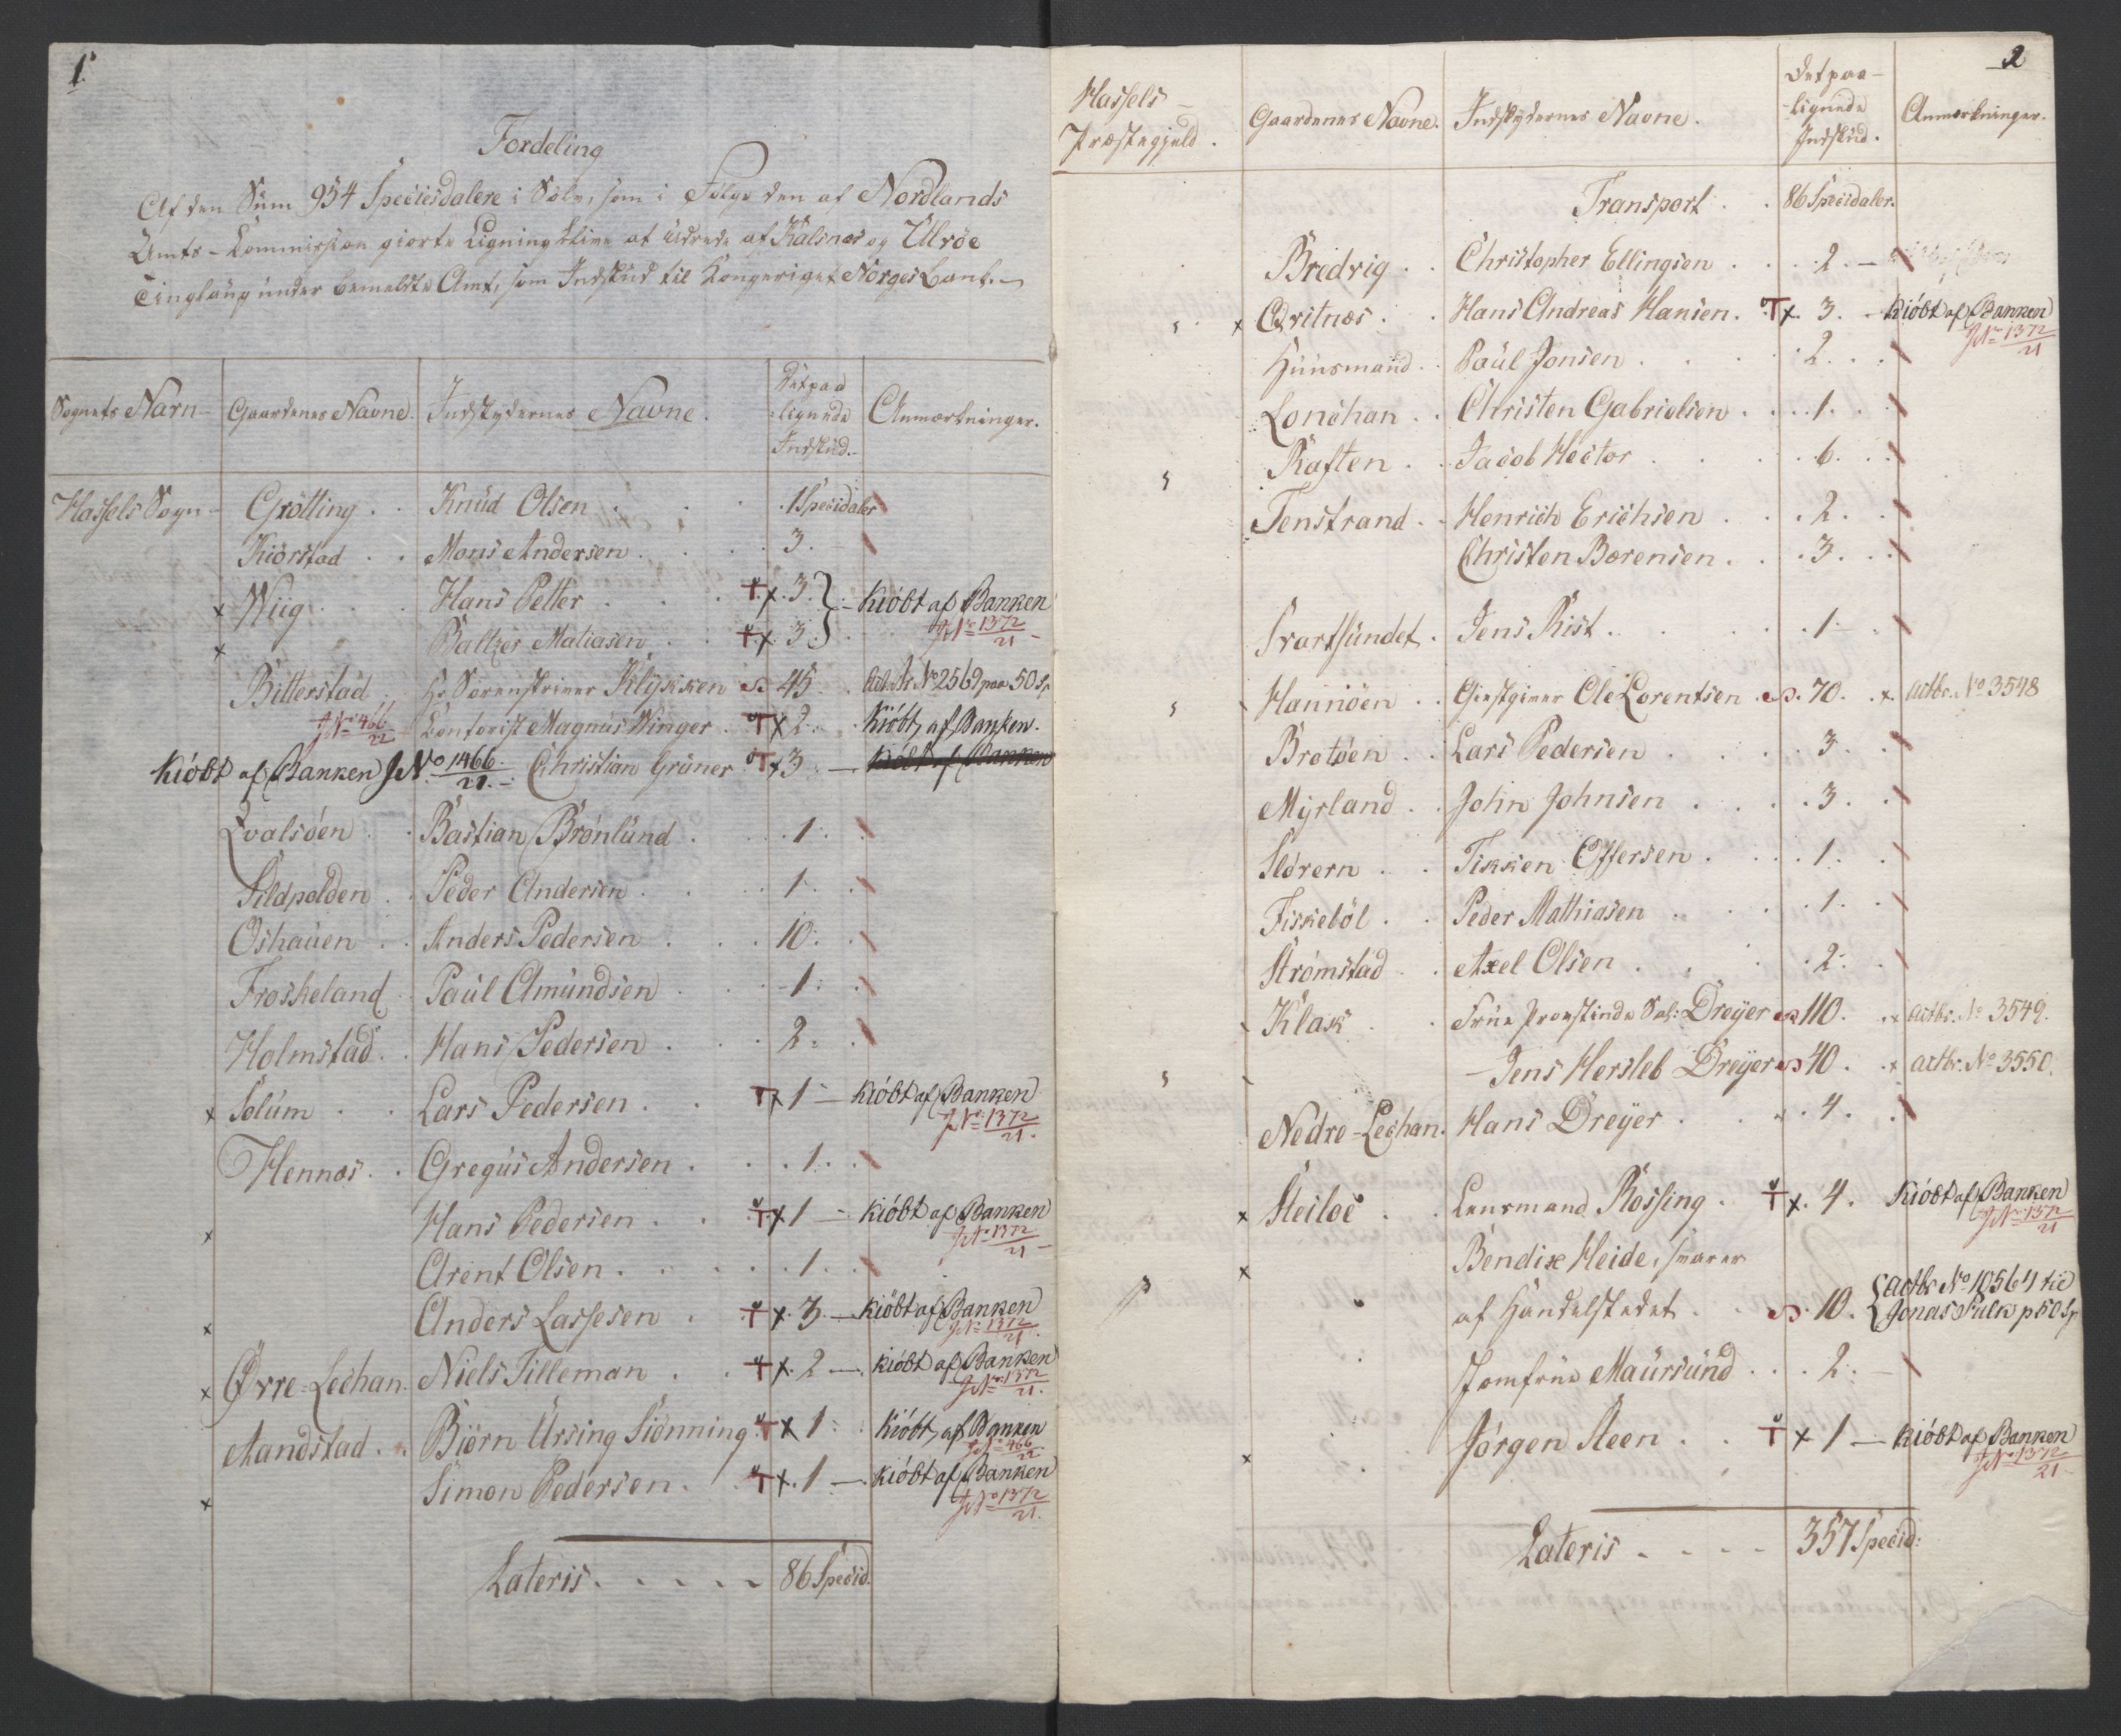 1.
Fordeling
Af den Sum 954 Speciesdalere i Sølv, som i Følge den af Nordlands
Amts-Commission giorte Ligning blive at udrede af Kalsnæs og Ulvöe
Tinglaug under bemeldte Amt, som Indskud til Kongeriget Norges Bank.
Sognets Navn Gaardenes Navne. Indskydernes Navne. Det paa-lignede Indskud. Anmærkninger.
Hassels Sogn Grötting . . Knud Olsen . . . 1 Specidaler
Kiörstad . . Mons Andersen . . 3.
x Wiig . . . Hans Petter . . . T x. 3. } Kióbt af Banken
x Baltzer Matiasen . . T x 3 JNo 1372/21
Bitterstad . Hr Sorenskriver Klykken S 45. Actbr No 2569 paa 50 Sp
JNo 466/22 Contorist Magnus Winger . T x 2. Kióbt af Banken.
Kióbt af Banken JNo 1466/21. Christian Grüner T x 3 — Kióbt af Banken
Qvalsöen . . Bastian Brönlund . . . 1.
Sildpolden . . Peder Andersen . . . 1.
Oshauen . . Anders Pedersen . . . 10.
Froskeland . Paul Amundsen . . . 1.
Holmstad . . Hans Pedersen . . . 2.
x Solum . . Lars Pedersen . . T x 1 — Kióbt af Banken
JNo 1372/21.
Hennæs . . Gregus Andersen . . . 1.
x Hans Pedersen . . T x 1 — Kióbt af Banken
JNo 1372/21
Arent Olsen . . . . 1.
x Anders Lassesen . . T x. 3. — Kióbt af Banken
JNo 1372/21.
x Øvre-Lechan. Niels Tilleman . . T x. 2 —. Kióbt af Banken
JNo 1372/21.
Aandstad . . Biörn Ursing Siönning T x 1. Kióbt af Banken
JNo 466/22
x Simon Pedersen . . T x. 1 —. Kióbt af Banken
JNo 1372/21.
Lateris . . . . . 86 Specid.
2
Hassels Præstegjeld. Gaardenes Navne. Indskydernes Navne. Det paa-lignede Indskud. Anmærkninger.
Transport . . 86 Specidaler.
Bredvig . . Christopher Ellingsen . . . 2. —
x Qvitnæs . . Hans Andreas Hansen. T x. 3. — Kióbt af Banken
JNo 1372/21
Huusmand . . Paul Jonsen . . . 2. . .
Lonchan . . Christen Gabrielsen . . . 1. . .
Raften . . Jacob Hector . . . 6. . .
Tenstrand . . Henrich Erichsen . . . 2. . .
Christen Børensen . . . 3. . .
Svartsundet . Jens Rist . . . . 1. .
Hannöen . . Giestgiver Ole Lorentsen . S. 70. . x. Actbr. No 3548
Brotöen . . Lars Pedersen . . . 3. .
Myrland . . John Johnsen . . . 3. .
Slörern . . Tikken Offersen . . . 1. .
Fiskeböl . . Peder Mathiasen . . . 1. .
Strömstad . . Axel Olsen . . . 2. .
Klak . . Frue Provstinde Sal: Dreyer S 110. . x Actbr. No 3549.
— Jens Hersleb Dreyer S 40. . x Actbr. No 3550.
Nedre-Lechan. Hans Dreyer . . . 4. .
x Steiloe . . Lensmand Rossing . T x. 4. Kióbt af Banken
JNo 1372/21
x Bendix Heide, svarer
af Handelstedet . . S. 10. { Actbr No 10564 til
Jonas Falk p 50 Sp
Jomfrue Maursund . . . 2. —
x Jörgen Steen . . T x 1 — Kióbt af Banken
JNo 1372/21
Lateris . . . . 357 Specid: